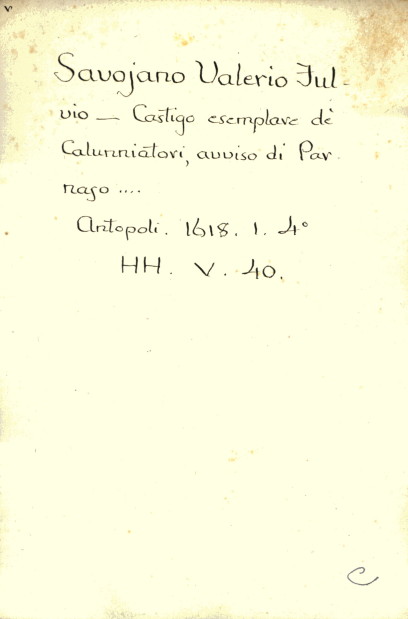 v
Savojano Valerio Ful-
vio — Castigo esemplare dè
Calunniatori, avviso di Par-
naso ....
Antopoli. 1618. 1. 4°
HH. V. 40.
C